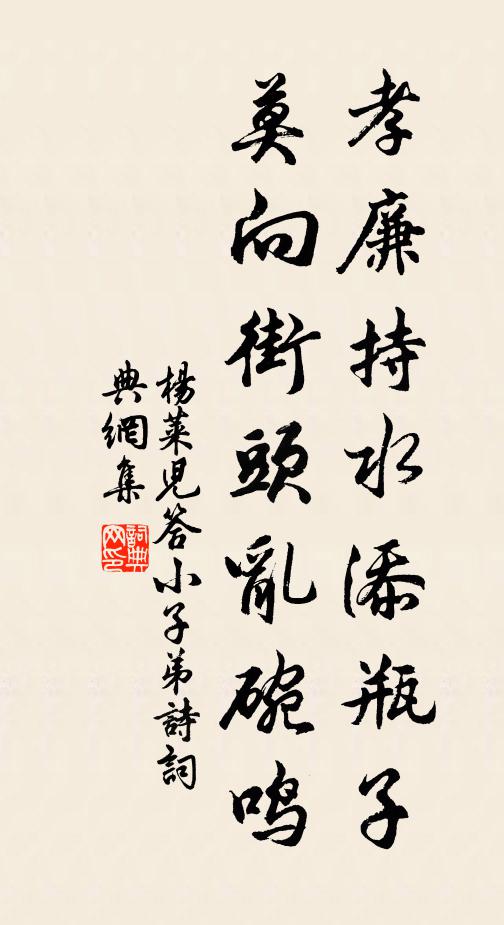 孝廉持水添瓶子
莫向街頭亂碗鳴
楊萊兒答小子弟詩詞
典網集
詞典網印